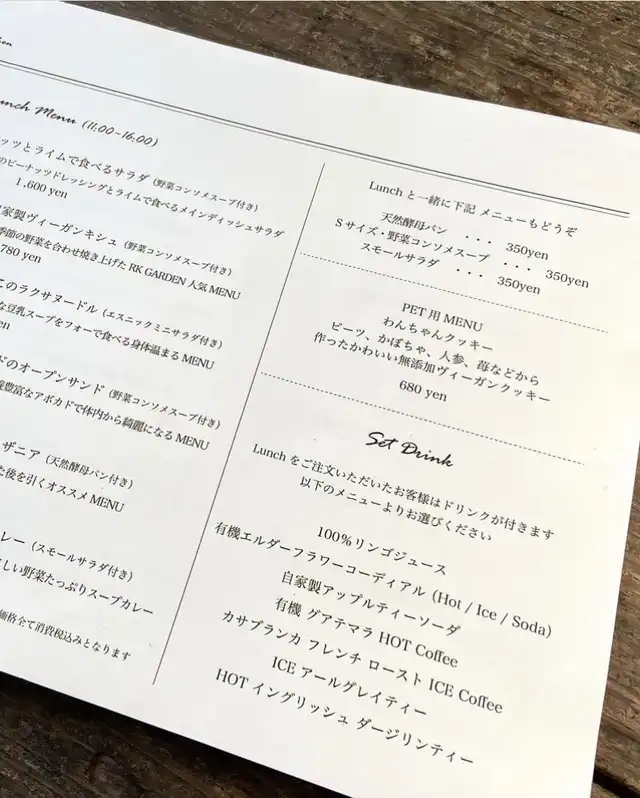 Lunch Menu (11:00~16:00)
ナッツとライムで食べるサラダ（野菜コンソメスープ付き）
のピーナッツドレッシングとライムで食べるメインディッシュサラダ
1,600 yen
自家製ヴィーガンキシュ（野菜コンソメスープ付き）
季節の野菜を合わせ焼き上げた RK GARDEN 人気 MENU
780 yen
このラクサヌードル（エスニックミニサラダ付き）
な豆乳スープをフォーで食べる身体温まる MENU
en
ドのオープンサンド（野菜コンソメスープ付き）
豊富なアボカドで体内から綺麗になる MENU
ザニア（天然酵母パン付き）
た後を引くオススメ MENU
レー（スモールサラダ付き）
しい野菜たっぷりスープカレー
価格全て消費税込みとなります
Lunch と一緒に下記 メニューもどうぞ
天然酵母パン ・・・ 350yen
S サイズ・野菜コンソメスープ ・・・ 350yen
スモールサラダ ・・・ 350yen
PET 用 MENU
わんちゃんクッキー
ビーツ、かぼちゃ、人参、苺などから
作ったかわいい無添加ヴィーガンクッキー
680 yen
Set Drink
Lunch をご注文いただいたお客様はドリンクが付きます
以下のメニューよりお選びください
100%リンゴジュース
有機エルダーフラワーコーディアル（Hot / Ice / Soda）
自家製アップルティーソーダ
有機 グアテマラ HOT Coffee
カサブランカ フレンチ ロースト ICE Coffee
ICE アールグレイティー
HOT イングリッシュ ダージリンティー